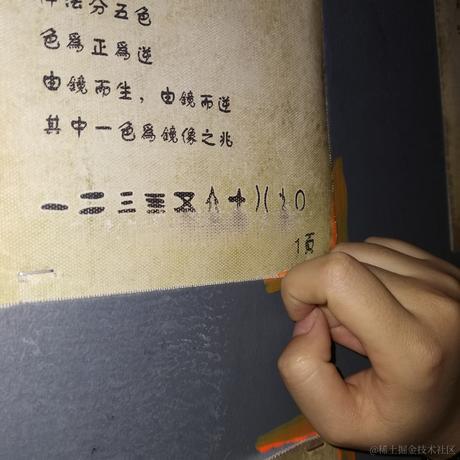 法分五色
色為正為逆
由鏡而生，由鏡而逆
其中一色為鏡像之兆
一二三亖㐅
十)(
0
1頁
@稀土掘金技术社区